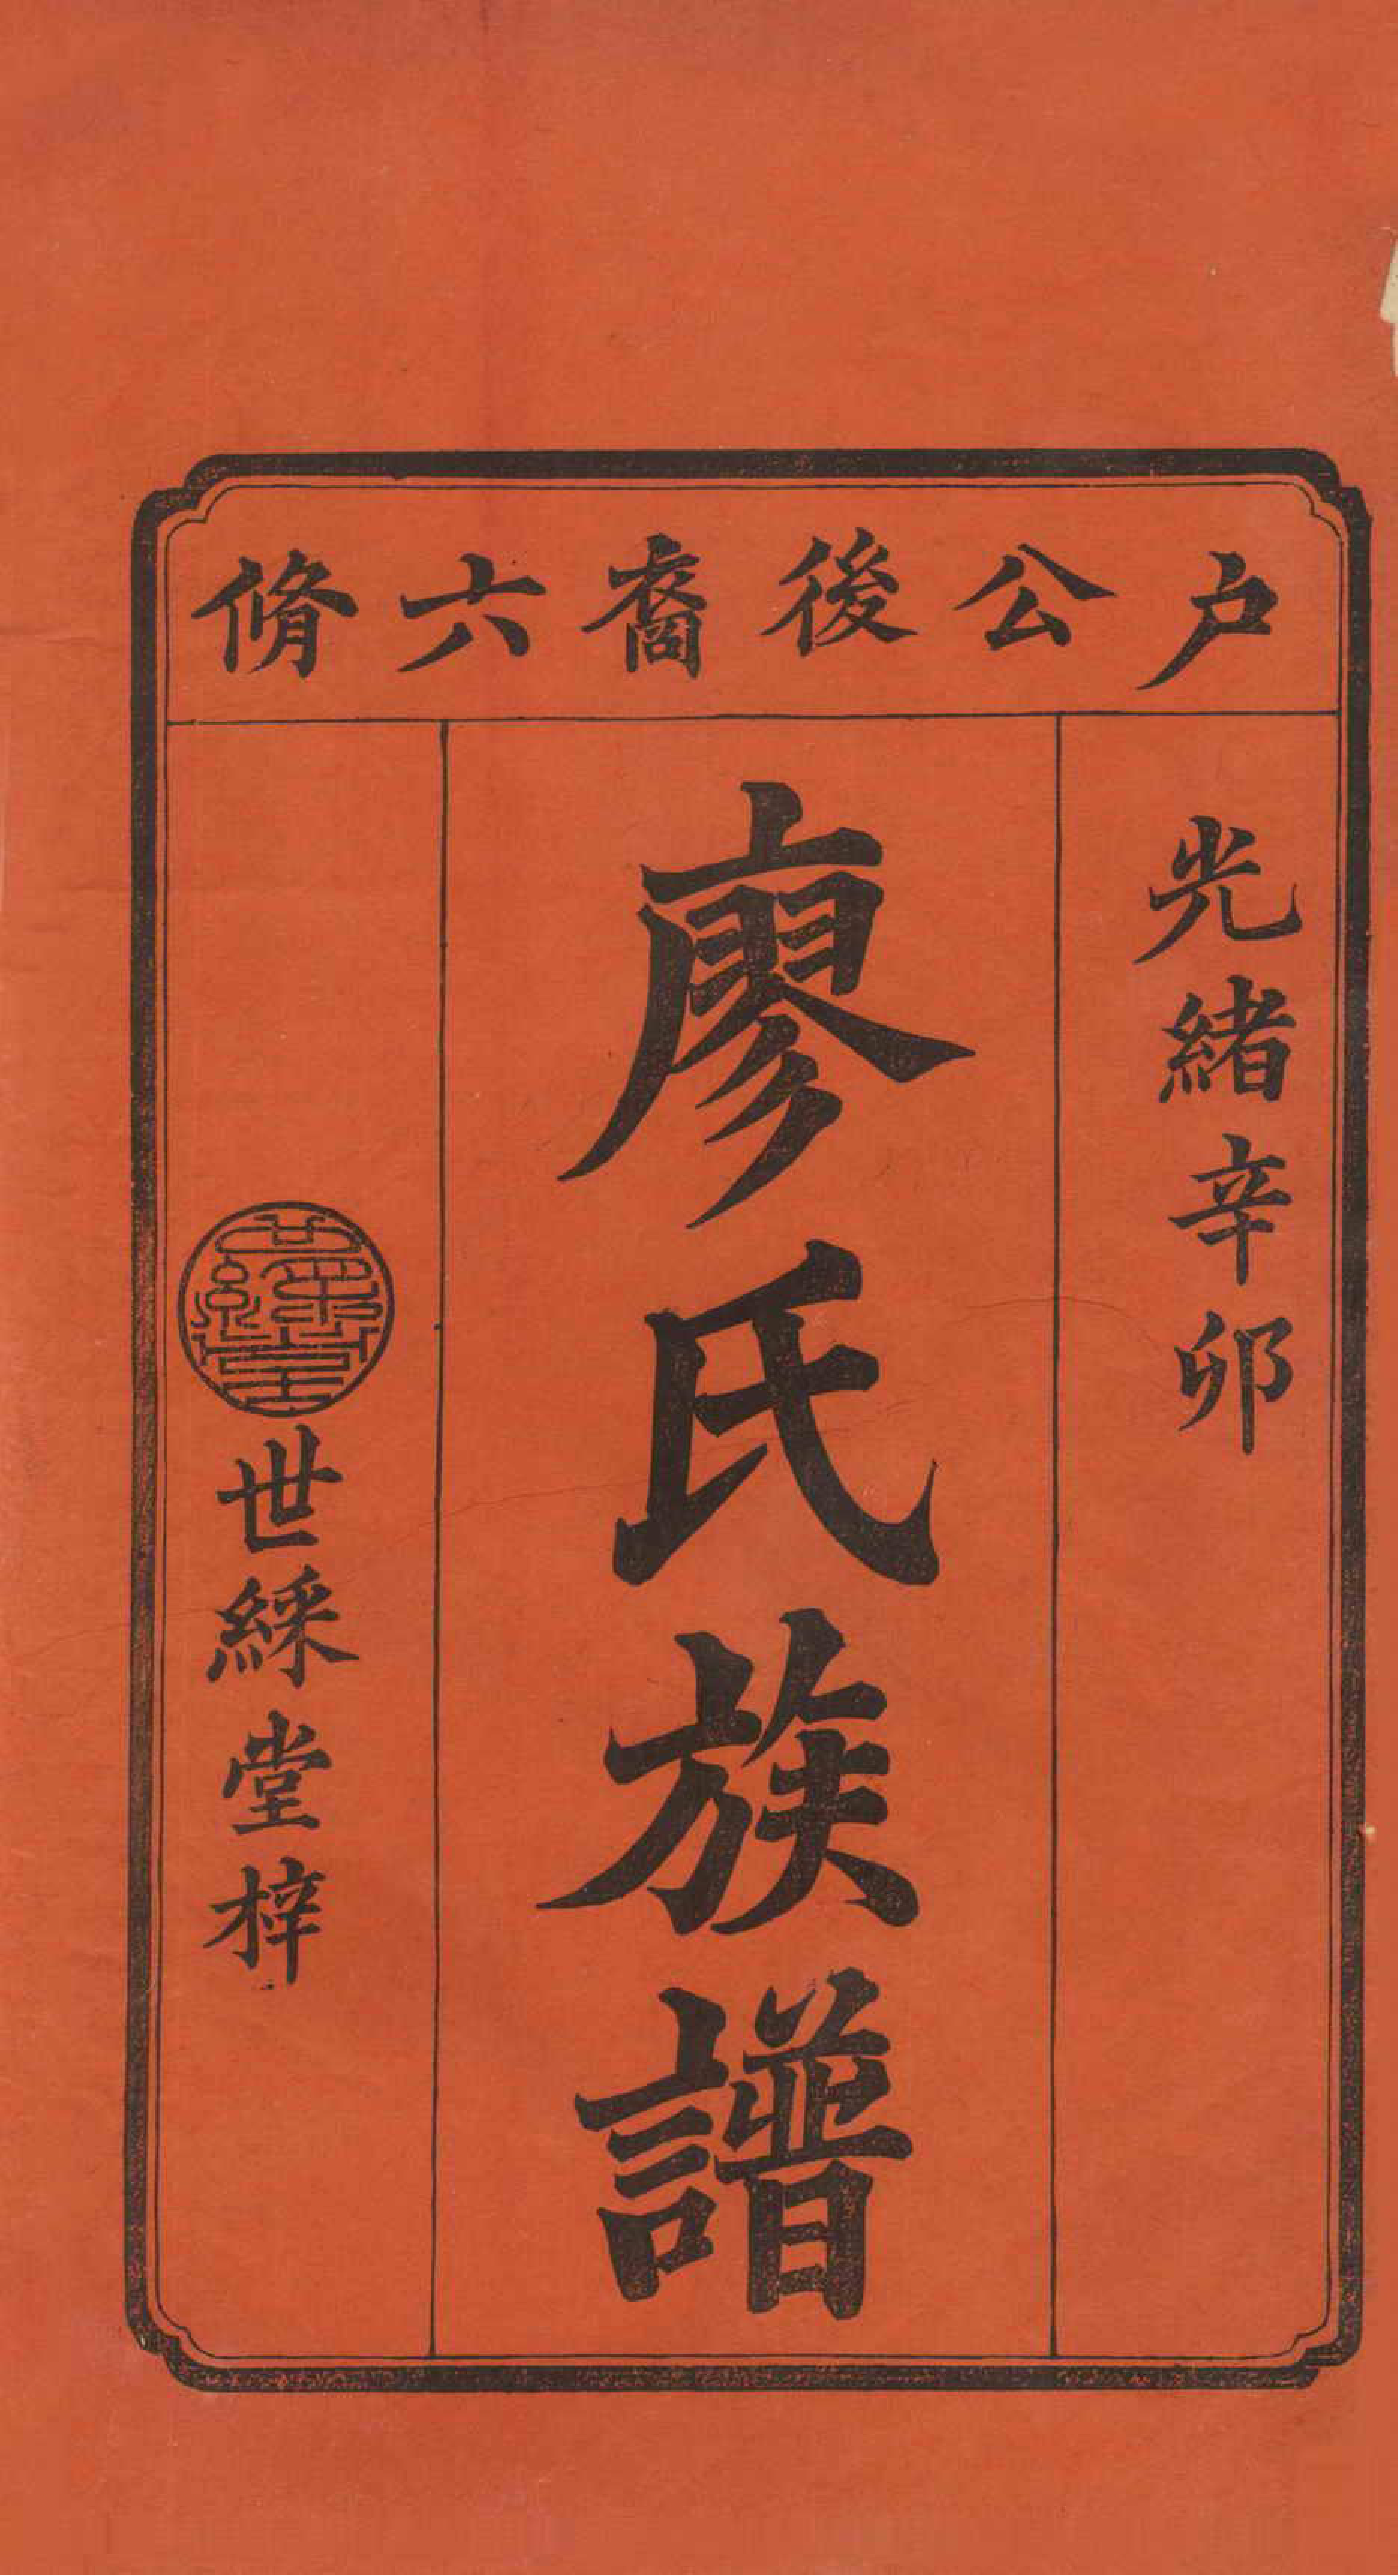 户公後裔六脩
光緒辛卯
廖氏族譜
世綵堂
世綵堂梓